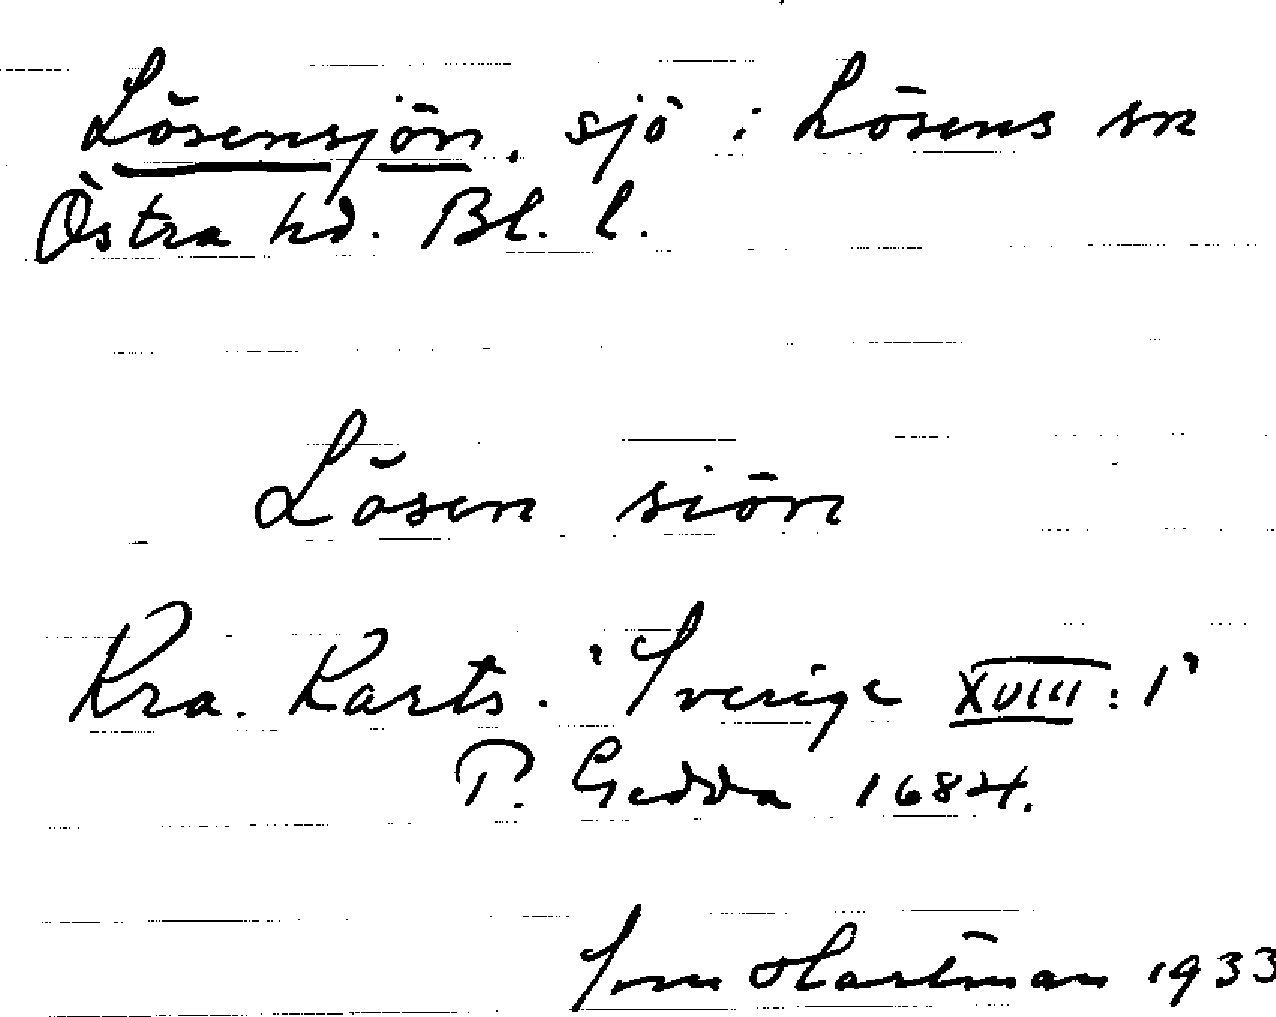 Lösensjön. sjö i Lösens sn
Östra hd. Bl. l.
Lösen siön
Kra. Karts. "Sverige XVIII: 1"
P. Gedda 1684.
Hartman 1933